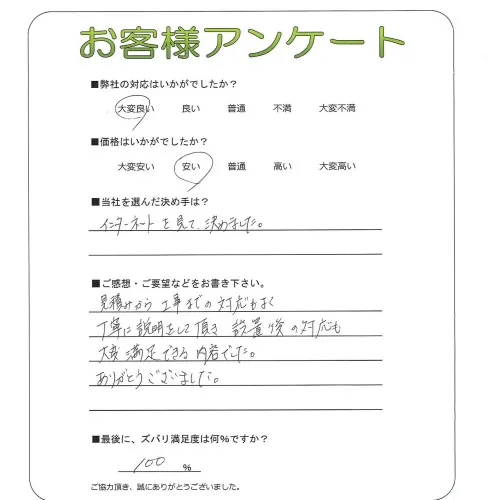 お客様アンケート
■弊社の対応はいかがでしたか？
大変良い 良い 普通 不満 大変不満
■価格はいかがでしたか？
大変安い 安い 普通 高い 大変高い
■当社を選んだ決め手は？
インターネットを見て、決めました。
■ご感想・ご要望などをお書き下さい。
見積みから工事までの対応もよく
丁寧に説明をして頂き 設置後の対応も
大変満足できる内容でした。
ありがとうございました。
■最後に、ズバリ満足度は何%ですか？
100 %
ご協力頂き、誠にありがとうございました。